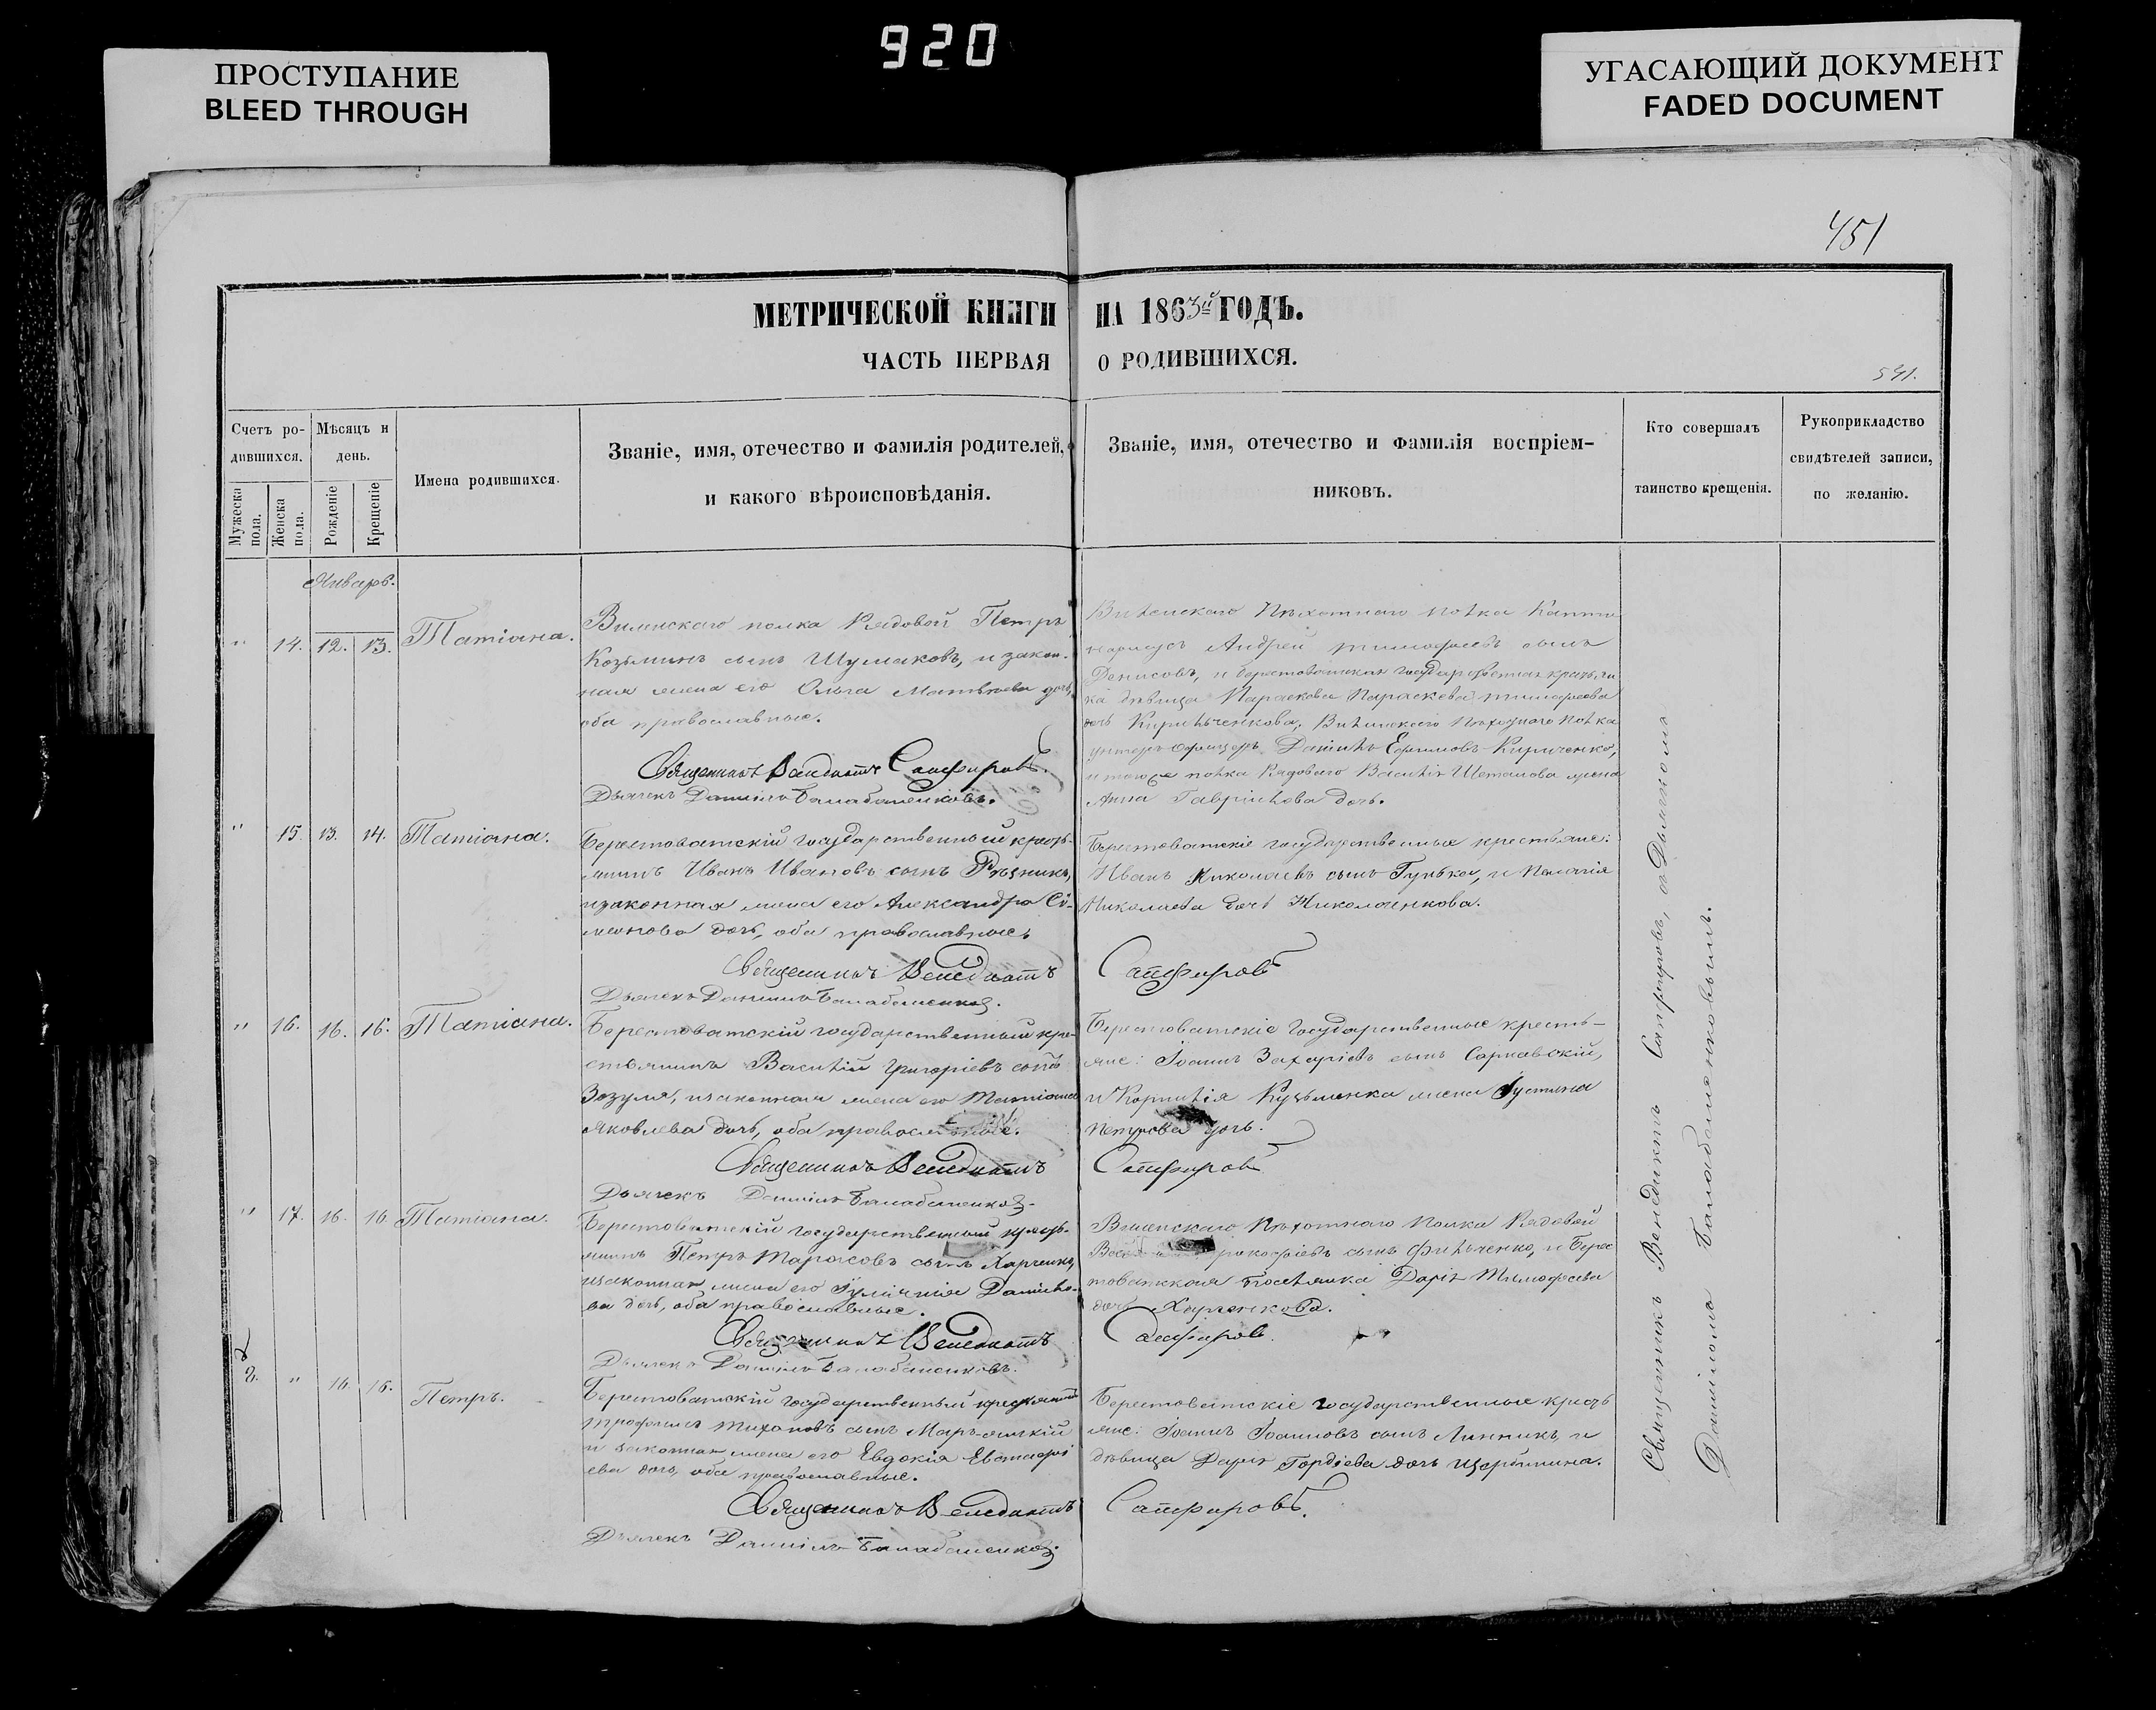 920
ПРОСТУПАНИЕ
BLEED THROUGH
УГАСАЮЩИЙ ДОКУМЕНТ
FADED DOCUMENT
451
МЕТРИЧЕСКОЙ КНИГИ НА 1863й ГОДЪ.
ЧАСТЬ ПЕРВАЯ О РОДИВШИХСЯ.
541.
Счетъ ро-
дившихся.
Мужеска пола.
Женска пола.
Мѣсяцъ и
день.
Рожденіе
Крещеніе
Имена родившихся.
Званіе, имя, отечество и фамилія родителей,
и какого вѣроисповѣданія.
Званіе, имя, отечество и фамилія воспріем-
никовъ.
Кто совершалъ
таинство крещенія.
Рукоприкладство
свидѣтелей записи,
по желанію.
Январь.
" 14. 12. 13. Татіана.
Виленскаго полка Рядовой Петръ
Козьминъ сынъ Шумаковъ, и закон-
ная жена его Ольга Матвѣева дочь,
оба православные.
Священникъ Венедиктъ Сапфировъ.
Дьячекъ Даніилъ Балабаненковъ.
Виленскаго Пѣхотнаго полка
Андрей Тимофеевъ сынъ
Денисовъ, и берестоватская государственная
дѣвица Параскева Тимофеева
дочь Кириченкова, Виленскаго Пѣхотнаго полка
унтеръ-офицеръ Даніилъ Ефимовъ Кириченко,
и того же полка Рядоваго Василія жена
Анна Гавріилова дочь.
" 15. 13. 14. Татіана.
Берестоватскій государственный кресть-
янинъ Иванъ Ивановъ сынъ Рѣзникъ,
и законная жена его Александра Си-
меонова дочь, оба православные.
Священникъ Венедиктъ Сапфировъ
Дьячекъ Даніилъ Балабаненковъ.
Берестоватскіе государственные крестьяне:
Иванъ Николаевъ сынъ Гунька, и Пелагія
Николаева дочь Николаенкова.
" 16. 16. 16. Татіана.
Берестоватскій государственный кре-
стьянинъ Василій Григоріевъ сынъ
Зозуля, и законная жена его Татіана
Яковлева дочь, оба православные.
Священникъ Венедиктъ Сапфировъ
Дьячекъ Даніилъ Балабаненковъ.
Берестоватскіе государственные кресть-
яне: Іоаннъ Захаріевъ сынъ Сарнавскій,
и Корнилія Кузьменка жена Іустина
Петрова дочь.
" 17. 16. 16. Татіана.
Берестоватскій государственный кресть-
янинъ Петръ Тарасовъ сынъ Харченко,
и законная жена его Іуліанія Даніило-
ва дочь, оба православные.
Священникъ Венедиктъ Сапфировъ.
Дьячекъ Даніилъ Балабаненковъ.
Виленскаго Пѣхотнаго полка Рядовой
сынъ Фильченко, и Берес
товатская поселянка Дарія Тимофеева
дочь Харченкова.
8. " 16. 16. Петръ.
Берестоватскій государственный крестьянинъ
Трофимъ Тихоновъ сынъ
и законная жена его Евдокія Евстафі
ева дочь, оба православные.
Священникъ Венедиктъ Сапфировъ.
Дьячекъ Даніилъ Балабаненковъ.
Берестоватскіе государственные кресть
яне: Іоаннъ Іоанновъ сынъ Линникъ, и
дѣвица Дарія Гордіева дочь Щербинина.
Священникъ Венедиктъ Сапфировъ, съ Дьячкомъ
Даніиломъ Балабаненковымъ.